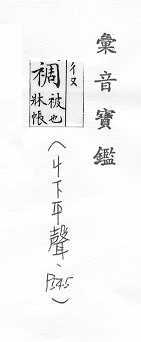 彙音寶鑑
彳又
裯 被也 牀帳
(ㄐ下平聲、P545)